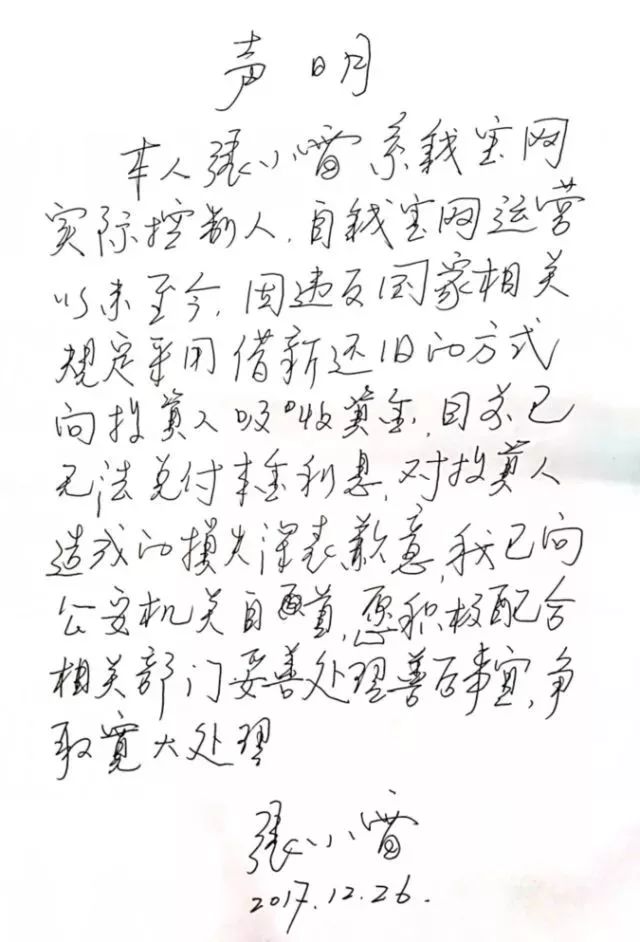 声明
本人張小雷系钱宝网
实际控制人,自钱宝网运营
以来至今,因违反国家相关
规定采用借新还旧的方式
向投资人吸收资金,目前已
无法兑付本金利息,对投资人
造成的损失深表歉意,我已向
公安机关自首,愿积极配合
相关部门妥善处理善后事宜,争
取宽大处理
張小雷
2017.12.26.